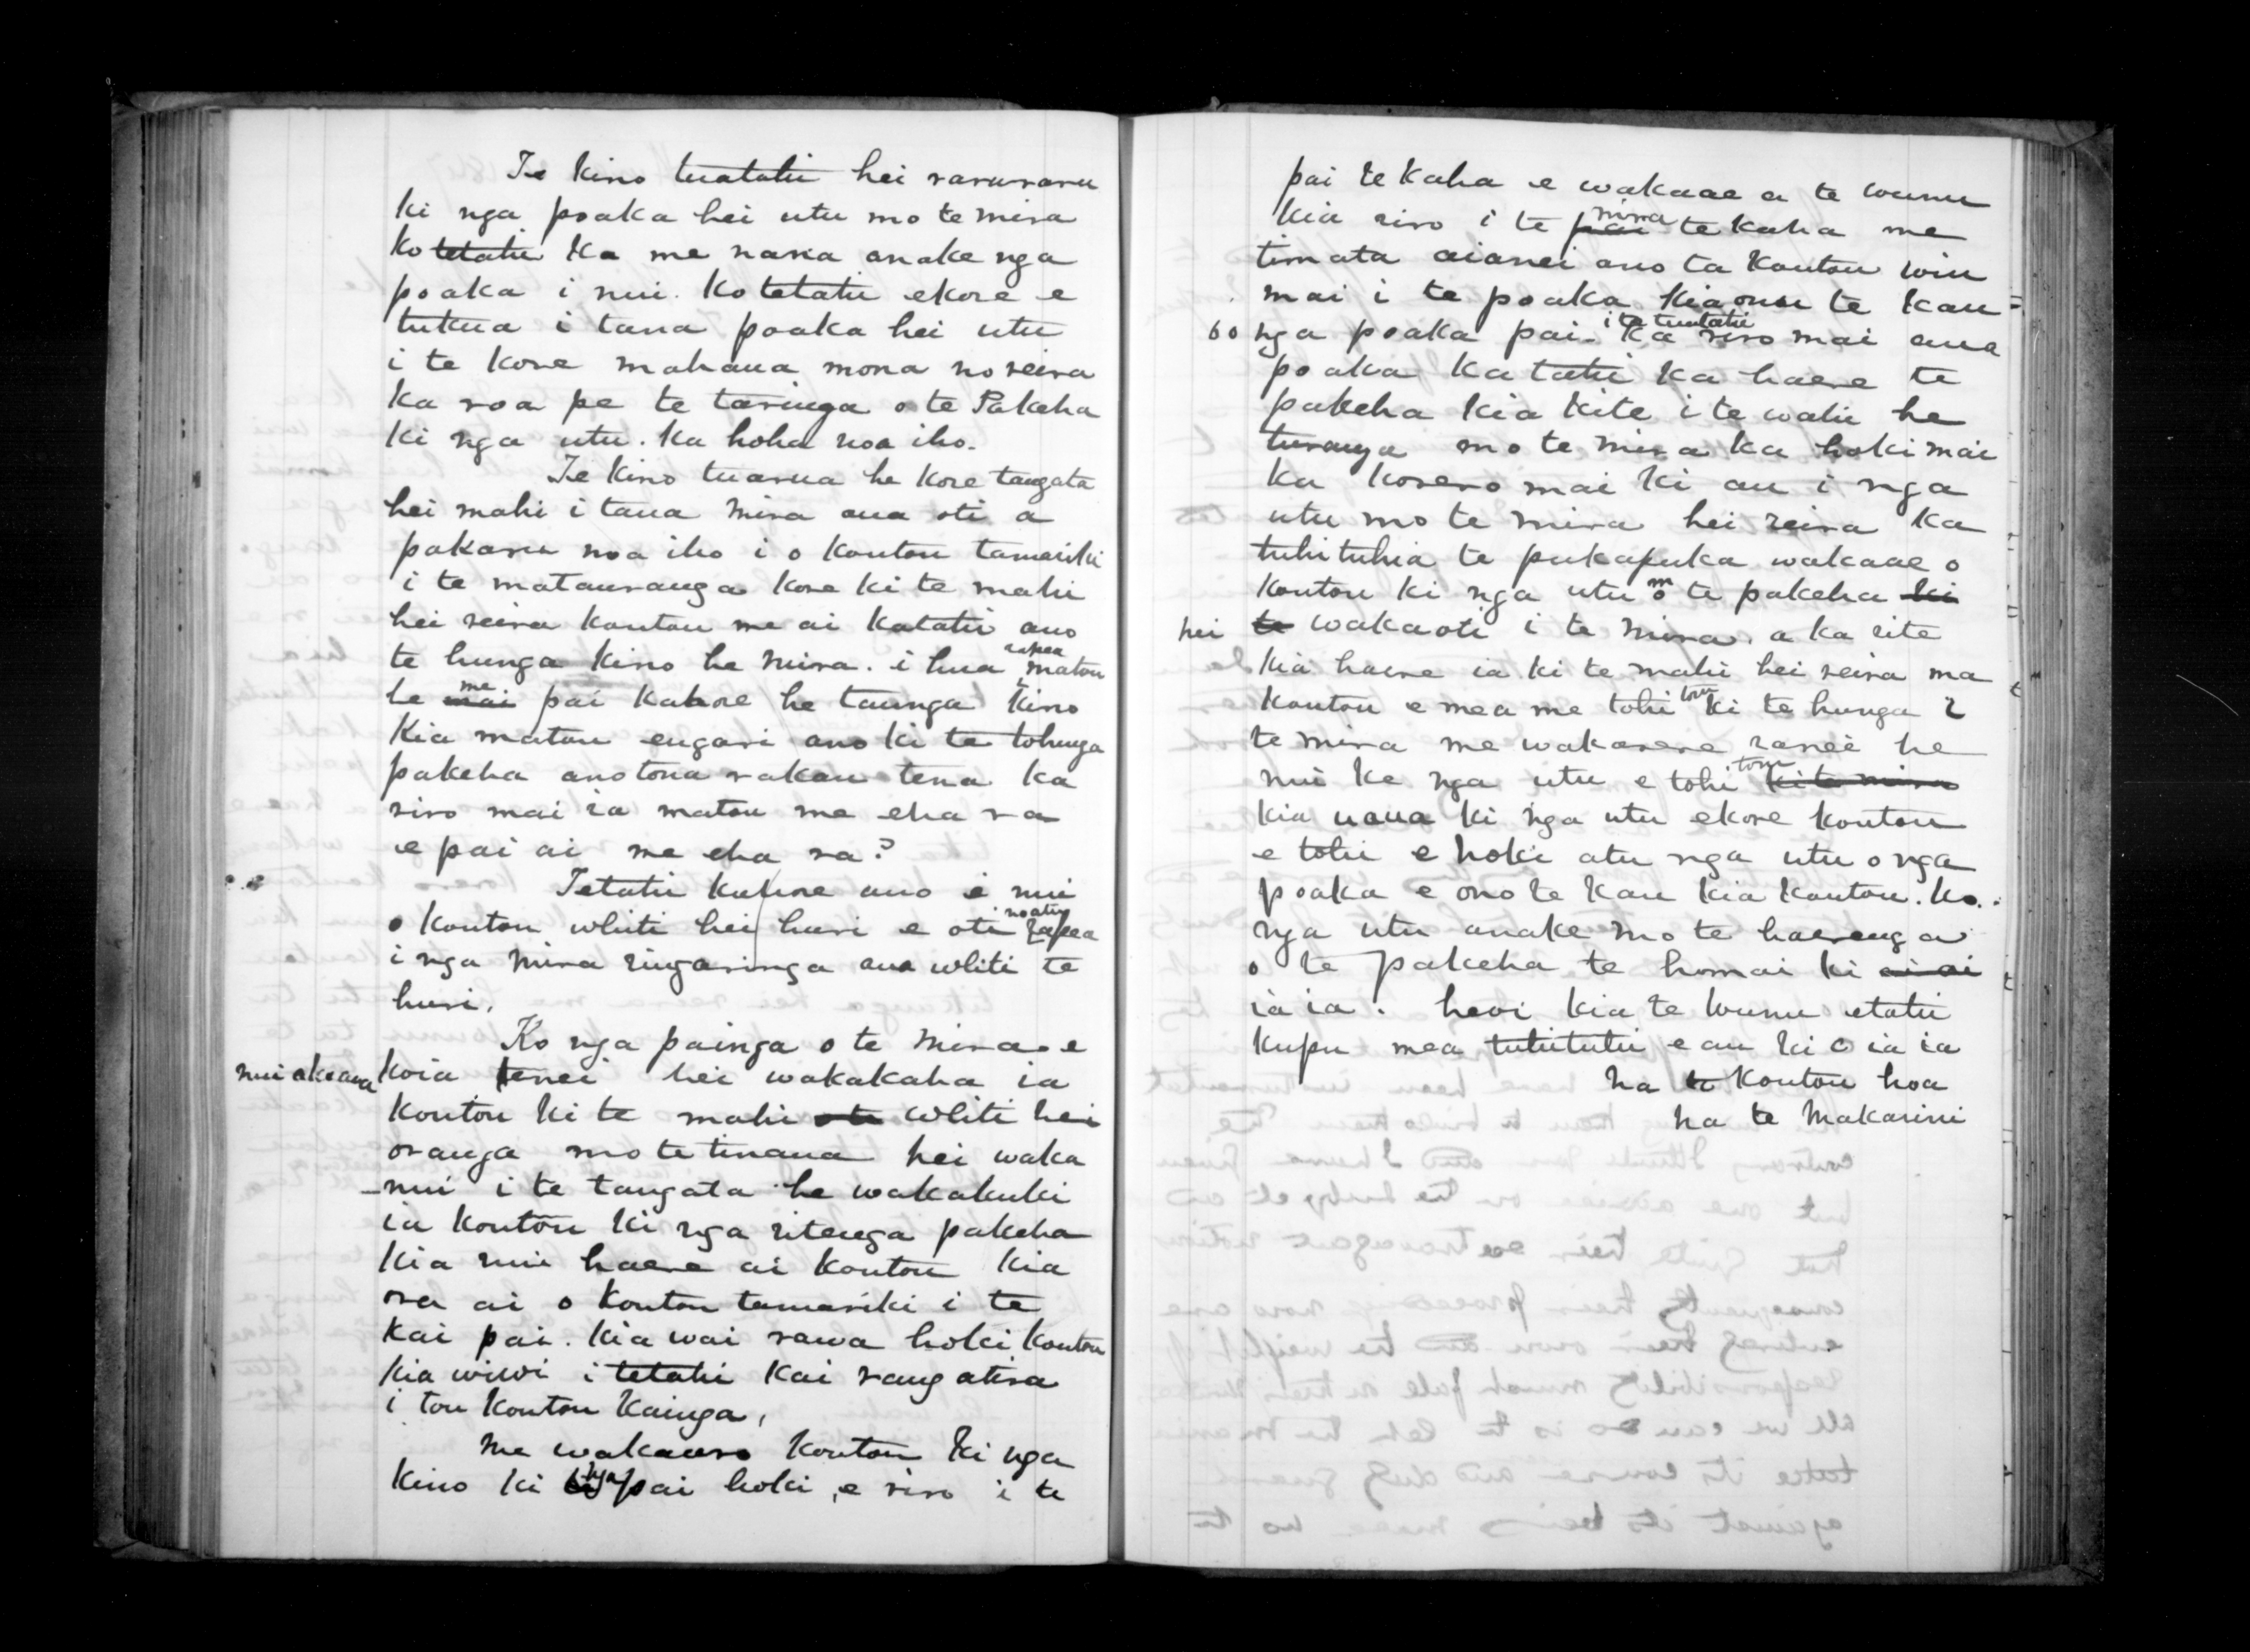 Te kino tuatahi hei raruraru
ki nga poaka hei utu mo te mira
ko tetahi ka me nana anake nga
poaka i nui. Ko tetahi ekore e
tukua i tana poaka hei utu
i te kore mahana mona no reira
ka roa pe te taringa o te Pakeha
ki nga utu. ka hoha noa iho.
Te kino tuarua he kore tangata
hei mahi i taua mira ana oti a
pakaru noa iho i o koutou tamariki
i te matauranga kore ki te mahi
hei reira koutou me ai katahi ano
te hunga kino he mira. i hua
matou
he me pai kahore he taunga kino
kia matou engari ano ki te tohunga
pakeha ano tona rakau tena ka
riro mai ia matou me eha ra
e pai ai me eha ra?
Tetahi kahore ano i nui
o koutou whiti hei huri e oti noatu
i nga mira ringaringa ana whiti te
huri.
Ko nga painga o te mira e
nui akeana koia tenei hei wakakaha ia
koutou ki te mahi o te whiti hei
oranga mo te tinana hei waka
-nui i te tangata he wakahuki
ia koutou ki nga ritenga pakeha
kia nui haere ai koutou kia
ora ai o koutou tamariki i te
kai pai. kia wai rawa hoki koutou
kia wiwi i tetahi kai rangatira
i tou koutou kainga,
Me wakaaro koutou ki nga
kino ki nga pai hoki, e riro i te
pai te kaha e wakaae a te wunu
mira
kia riro i te pai te kaha me
timata aianei ano ta koutou win
mai i te poaka kia onu te kau=
i te tuatahi
60 nga poaka pai. ka riro mai ana
poaka katahi ka haere te
pakeha kia kite i te wahi he
turanga mo te mira ka hoki mai
ka korero mai ki au i nga
utu mo te mira hei reira ka
tuhituhia te pukapuka wakaae o
koutou ki nga utu mo te pakeha ki
hei te wakaoti i te mira. a ka rite
kia haere ia ki te mahi hei reira ma
koutou e mea me tohi tou ki te hunga i
te mira me wakarere ranei he
nui ke nga utu e tohi tou ki te mira
kia uaua ki nga utu ekore koutou
e tohi e hoki atu nga utu o nga
poaka e ono te kau kia koutou. Ko
nga utu anake mo te haerenga
o te pakeha te homai ki ai ai
ia ia. heoi kia te wunu etahi
kupu mea tuhituhi e au ki a ia ia
na te koutou hoa
na te Makarini